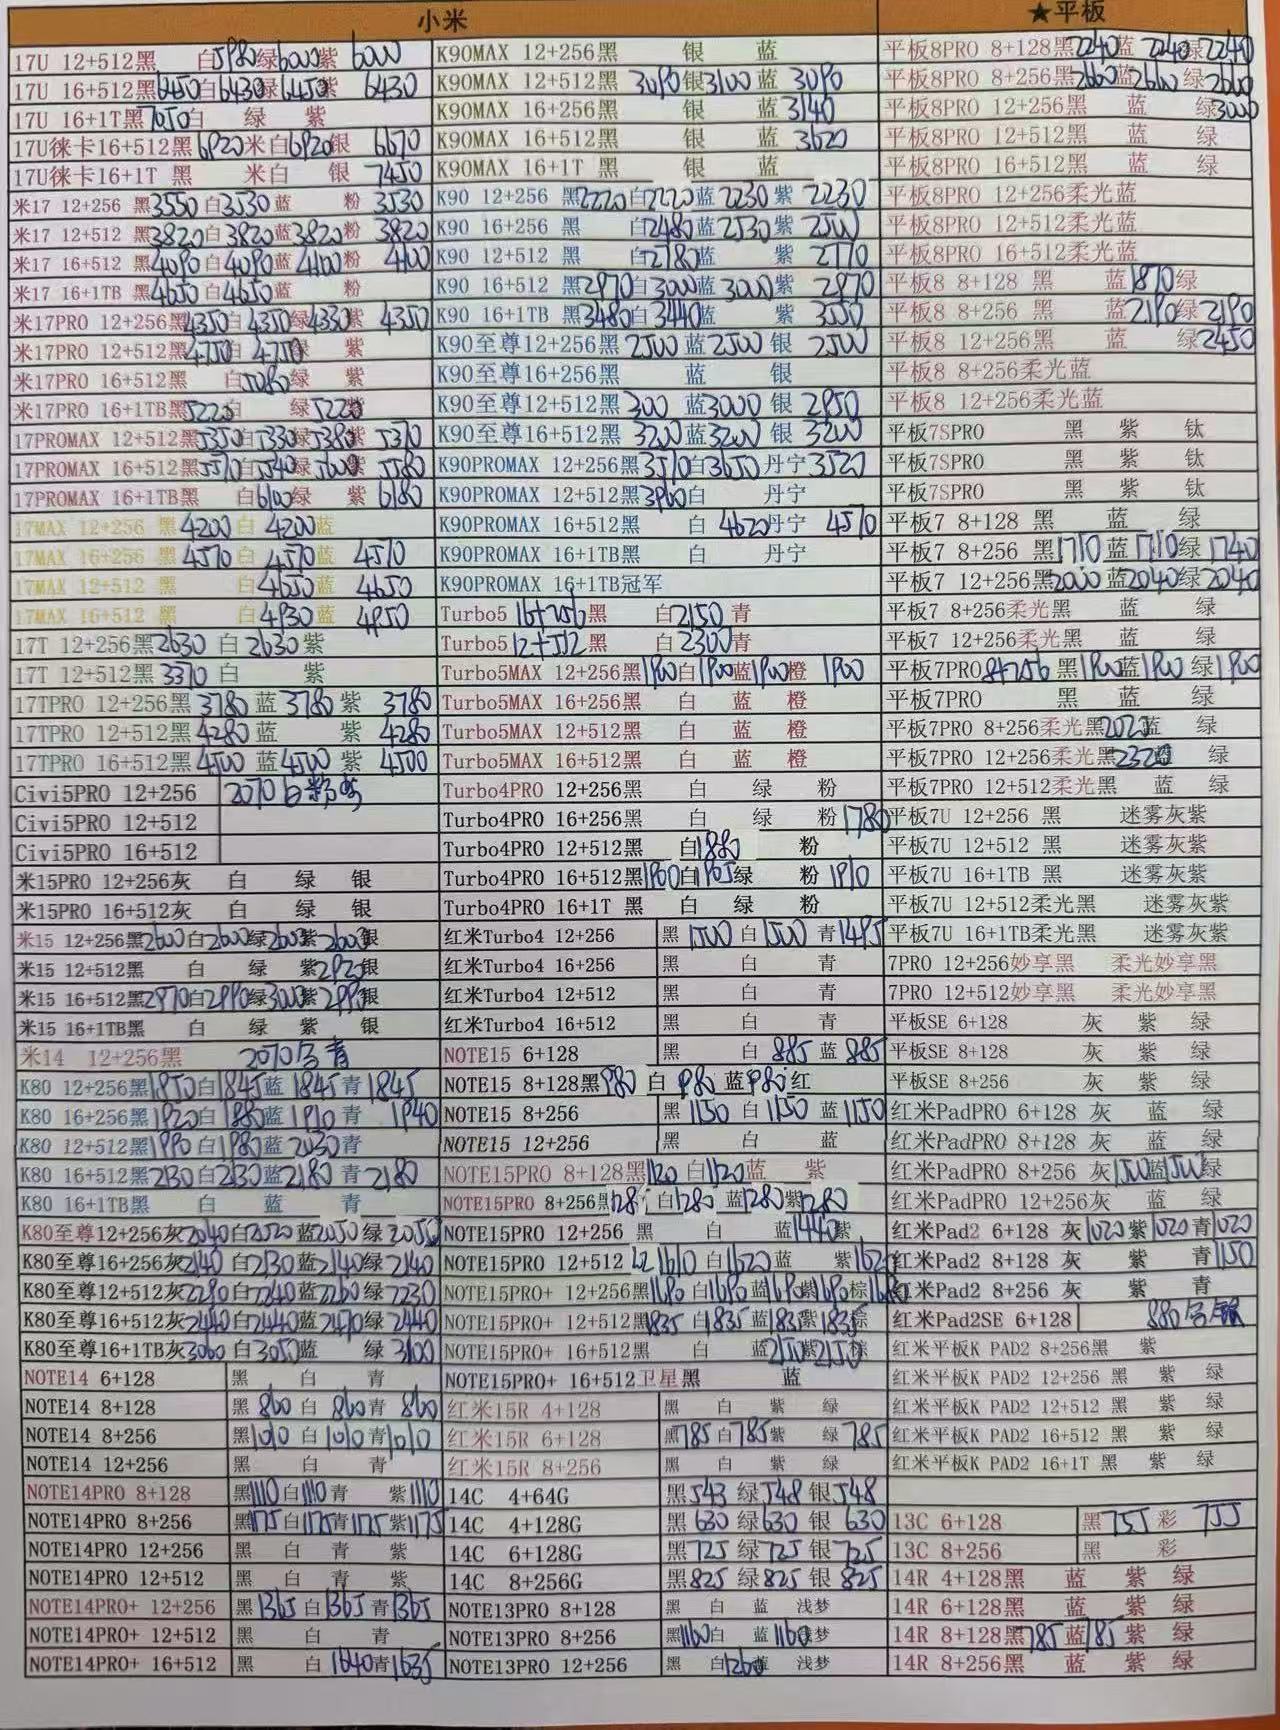 小米
★平板
17U 12+512黑 白5980绿6000紫 6000
17U 16+512黑6450白6430绿6450紫 6430
17U 16+1T黑7050白 绿 紫
17U徕卡16+512黑6920米白6920银 6670
17U徕卡16+1T 黑 米白 银 7450
米17 12+256 黑3550白3530蓝 粉 3530
米17 12+512 黑3820白3820蓝3820粉 3820
米17 16+512 黑4090白4090蓝4100粉 4100
米17 16+1TB 黑4650白4650蓝 粉
米17PRO 12+256黑4350白 4350绿4330紫 4350
米17PRO 12+512黑4750白 4750绿 紫
米17PRO 16+512黑 白5080绿 紫
米17PRO 16+1TB黑5220白 绿5220紫
17PROMAX 12+512黑5350白5330绿5380紫 5370
17PROMAX 16+512黑5570白5540绿5600紫 5580
17PROMAX 16+1TB黑 白6100绿 紫 6180
17MAX 12+256 黑4200白 4200蓝
17MAX 16+256 黑4570白 4570蓝 4570
17MAX 12+512 黑 白4650蓝 4650
17MAX 16+512 黑 白4930蓝 4950
17T 12+256黑2630 白 2630紫
17T 12+512黑 3370 白 紫
17TPRO 12+256黑 3780 蓝 3780 紫 3780
17TPRO 12+512黑4280 蓝 紫 4280
17TPRO 16+512黑4500 蓝4500 紫 4500
Civi5PRO 12+256 2070白粉紫
Civi5PRO 12+512
Civi5PRO 16+512
米15PRO 12+256灰 白 绿 银
米15PRO 16+512灰 白 绿 银
米15 12+256黑2600白2600绿2600紫2600银
米15 12+512黑 白 绿 紫2920银
米15 16+512黑2970白2990绿3000紫2990银
米15 16+1TB黑 白 绿 紫 银
米14 12+256黑 2070白青
K80 12+256黑1850白1845蓝 1845青 1845
K80 16+256黑1920白1880蓝 1910 青 1940
K80 12+512黑1990白1980蓝 2030青
K80 16+512黑2130白2130蓝2180 青 2180
K80 16+1TB黑 白 蓝 青
K80至尊12+256灰2040白2050蓝2050绿 2050
K80至尊16+256灰2140白2130蓝2140绿 2140
K80至尊12+512灰2290白2240蓝2260绿 2230
K80至尊16+512灰2440白2440蓝2470绿 2440
K80至尊16+1TB灰3060白3050蓝 绿 3100
NOTE14 6+128 黑 白 青
NOTE14 8+128 黑 860 白 860青 860
NOTE14 8+256 黑1010 白 1010青1010
NOTE14 12+256 黑 白 青
NOTE14PRO 8+128 黑1110白1110青 紫1110
NOTE14PRO 8+256 黑1175白1175青1175紫1175
NOTE14PRO 12+256 黑 白 青 紫
NOTE14PRO 12+512 黑 白 青 紫
NOTE14PRO+ 12+256 黑1365白1365青1365
NOTE14PRO+ 12+512 黑 白 青
NOTE14PRO+ 16+512 黑 白1640青1635
K90MAX 12+256黑 银 蓝
K90MAX 12+512黑 3090银3100蓝 3090
K90MAX 16+256黑 银 蓝 3140
K90MAX 16+512黑 银 蓝 3620
K90MAX 16+1T 黑 银 蓝
K90 12+256 黑2220白2220蓝 2230 紫 2230
K90 16+256 黑 白2480蓝 2530 紫 2500
K90 12+512 黑 白2780蓝 紫 2770
K90 16+512 黑2970白3000蓝 3000紫 2970
K90 16+1TB 黑3480白3440蓝 紫 3550
K90至尊12+256黑 2500 蓝2500 银 2500
K90至尊16+256黑 蓝 银
K90至尊12+512黑 300 蓝3000 银 2950
K90至尊16+512黑 3200 蓝3200 银 3200
K90PROMAX 12+256黑3510白3650 丹宁3520
K90PROMAX 12+512黑3900白 丹宁
K90PROMAX 16+512黑 白 4620丹宁 4570
K90PROMAX 16+1TB黑 白 丹宁
K90PROMAX 16+1TB冠军
Turbo5 16+256黑 白2150 青
Turbo5 12+512黑 白2300青
Turbo5MAX 12+256黑1900白1900蓝1900橙 1900
Turbo5MAX 16+256黑 白 蓝 橙
Turbo5MAX 12+512黑 白 蓝 橙
Turbo5MAX 16+512黑 白 蓝 橙
Turbo4PRO 12+256黑 白 绿 粉
Turbo4PRO 16+256黑 白 绿 粉1780
Turbo4PRO 12+512黑 白1880 粉
Turbo4PRO 16+512黑1900白1905绿 粉 1910
Turbo4PRO 16+1T 黑 白 绿 粉
红米Turbo4 12+256 黑 1500 白 1500 青1495
红米Turbo4 16+256 黑 白 青
红米Turbo4 12+512 黑 白 青
红米Turbo4 16+512 黑 白 青
NOTE15 6+128 黑 白 885 蓝 885
NOTE15 8+128黑980 白 980 蓝980红
NOTE15 8+256 黑 1150 白 1150 蓝1150
NOTE15 12+256 黑 白 蓝
NOTE15PRO 8+128黑1120 白1120蓝 紫
NOTE15PRO 8+256黑128 白1280 蓝1280紫1280
NOTE15PRO 12+256 黑 白 蓝1440紫
NOTE15PRO 12+512 1610 白1620蓝 紫1620
NOTE15PRO+ 12+256黑1690 白1690蓝1690紫1690棕1690
NOTE15PRO+ 12+512黑1835 白1835蓝1835紫1835棕
NOTE15PRO+ 16+512黑 白 蓝2150紫2150棕
NOTE15PRO+ 16+512卫星黑 蓝
红米15R 4+128 黑 白 紫 绿
红米15R 6+128 黑785白785紫 绿 785
红米15R 8+256 黑 白 紫 绿
14C 4+64G 黑543 绿548 银548
14C 4+128G 黑 630 绿630 银 630
14C 6+128G 黑725 绿725 银725
14C 8+256G 黑825 绿825 银 825
NOTE13PRO 8+128 黑 白 蓝 浅梦
NOTE13PRO 8+256 黑1160白 蓝1160浅梦
NOTE13PRO 12+256 黑 白1260蓝 浅梦
平板8PRO 8+128黑2240蓝 2240绿2240
平板8PRO 8+256黑2600蓝2600 绿2600
平板8PRO 12+256黑 蓝 绿3000
平板8PRO 12+512黑 蓝 绿
平板8PRO 16+512黑 蓝 绿
平板8PRO 12+256柔光蓝
平板8PRO 12+512柔光蓝
平板8PRO 16+512柔光蓝
平板8 8+128 黑 蓝1870绿
平板8 8+256 黑 蓝2190绿2190
平板8 12+256 黑 蓝 绿2450
平板8 8+256柔光蓝
平板8 12+256柔光蓝
平板7SPRO 黑 紫 钛
平板7SPRO 黑 紫 钛
平板7SPRO 黑 紫 钛
平板7 8+128 黑 蓝 绿
平板7 8+256 黑1710蓝1710绿 1740
平板7 12+256黑2000蓝2040绿2040
平板7 8+256柔光黑 蓝 绿
平板7 12+256柔光黑 蓝 绿
平板7PRO8+256 黑1900蓝1900 绿1900
平板7PRO 黑 蓝 绿
平板7PRO 8+256柔光黑2020蓝 绿
平板7PRO 12+256柔光黑2320蓝 绿
平板7PRO 12+512柔光黑 蓝 绿
平板7U 12+256 黑 迷雾灰紫
平板7U 12+512 黑 迷雾灰紫
平板7U 16+1TB 黑 迷雾灰紫
平板7U 12+512柔光黑 迷雾灰紫
平板7U 16+1TB柔光黑 迷雾灰紫
7PRO 12+256妙享黑 柔光妙享黑
7PRO 12+512妙享黑 柔光妙享黑
平板SE 6+128 灰 紫 绿
平板SE 8+128 灰 紫 绿
平板SE 8+256 灰 紫 绿
红米PadPRO 6+128 灰 蓝 绿
红米PadPRO 8+128灰 蓝 绿
红米PadPRO 8+256 灰1500蓝1500绿
红米PadPRO 12+256灰 蓝 绿
红米Pad2 6+128 灰1020紫1020青1020
红米Pad2 8+128 灰 紫 青1150
红米Pad2 8+256 灰 紫 青
红米Pad2SE 6+128 880
红米平板K PAD2 8+256黑 紫
红米平板K PAD2 12+256 黑 紫 绿
红米平板K PAD2 12+512 黑 紫 绿
红米平板K PAD2 16+512 黑 紫 绿
红米平板K PAD2 16+1T 黑 紫 绿
13C 6+128 黑755 彩 755
13C 8+256 黑 彩
14R 4+128黑 蓝 紫 绿
14R 6+128黑 蓝 紫 绿
14R 8+128黑785蓝785 紫 绿
14R 8+256黑 蓝 紫 绿